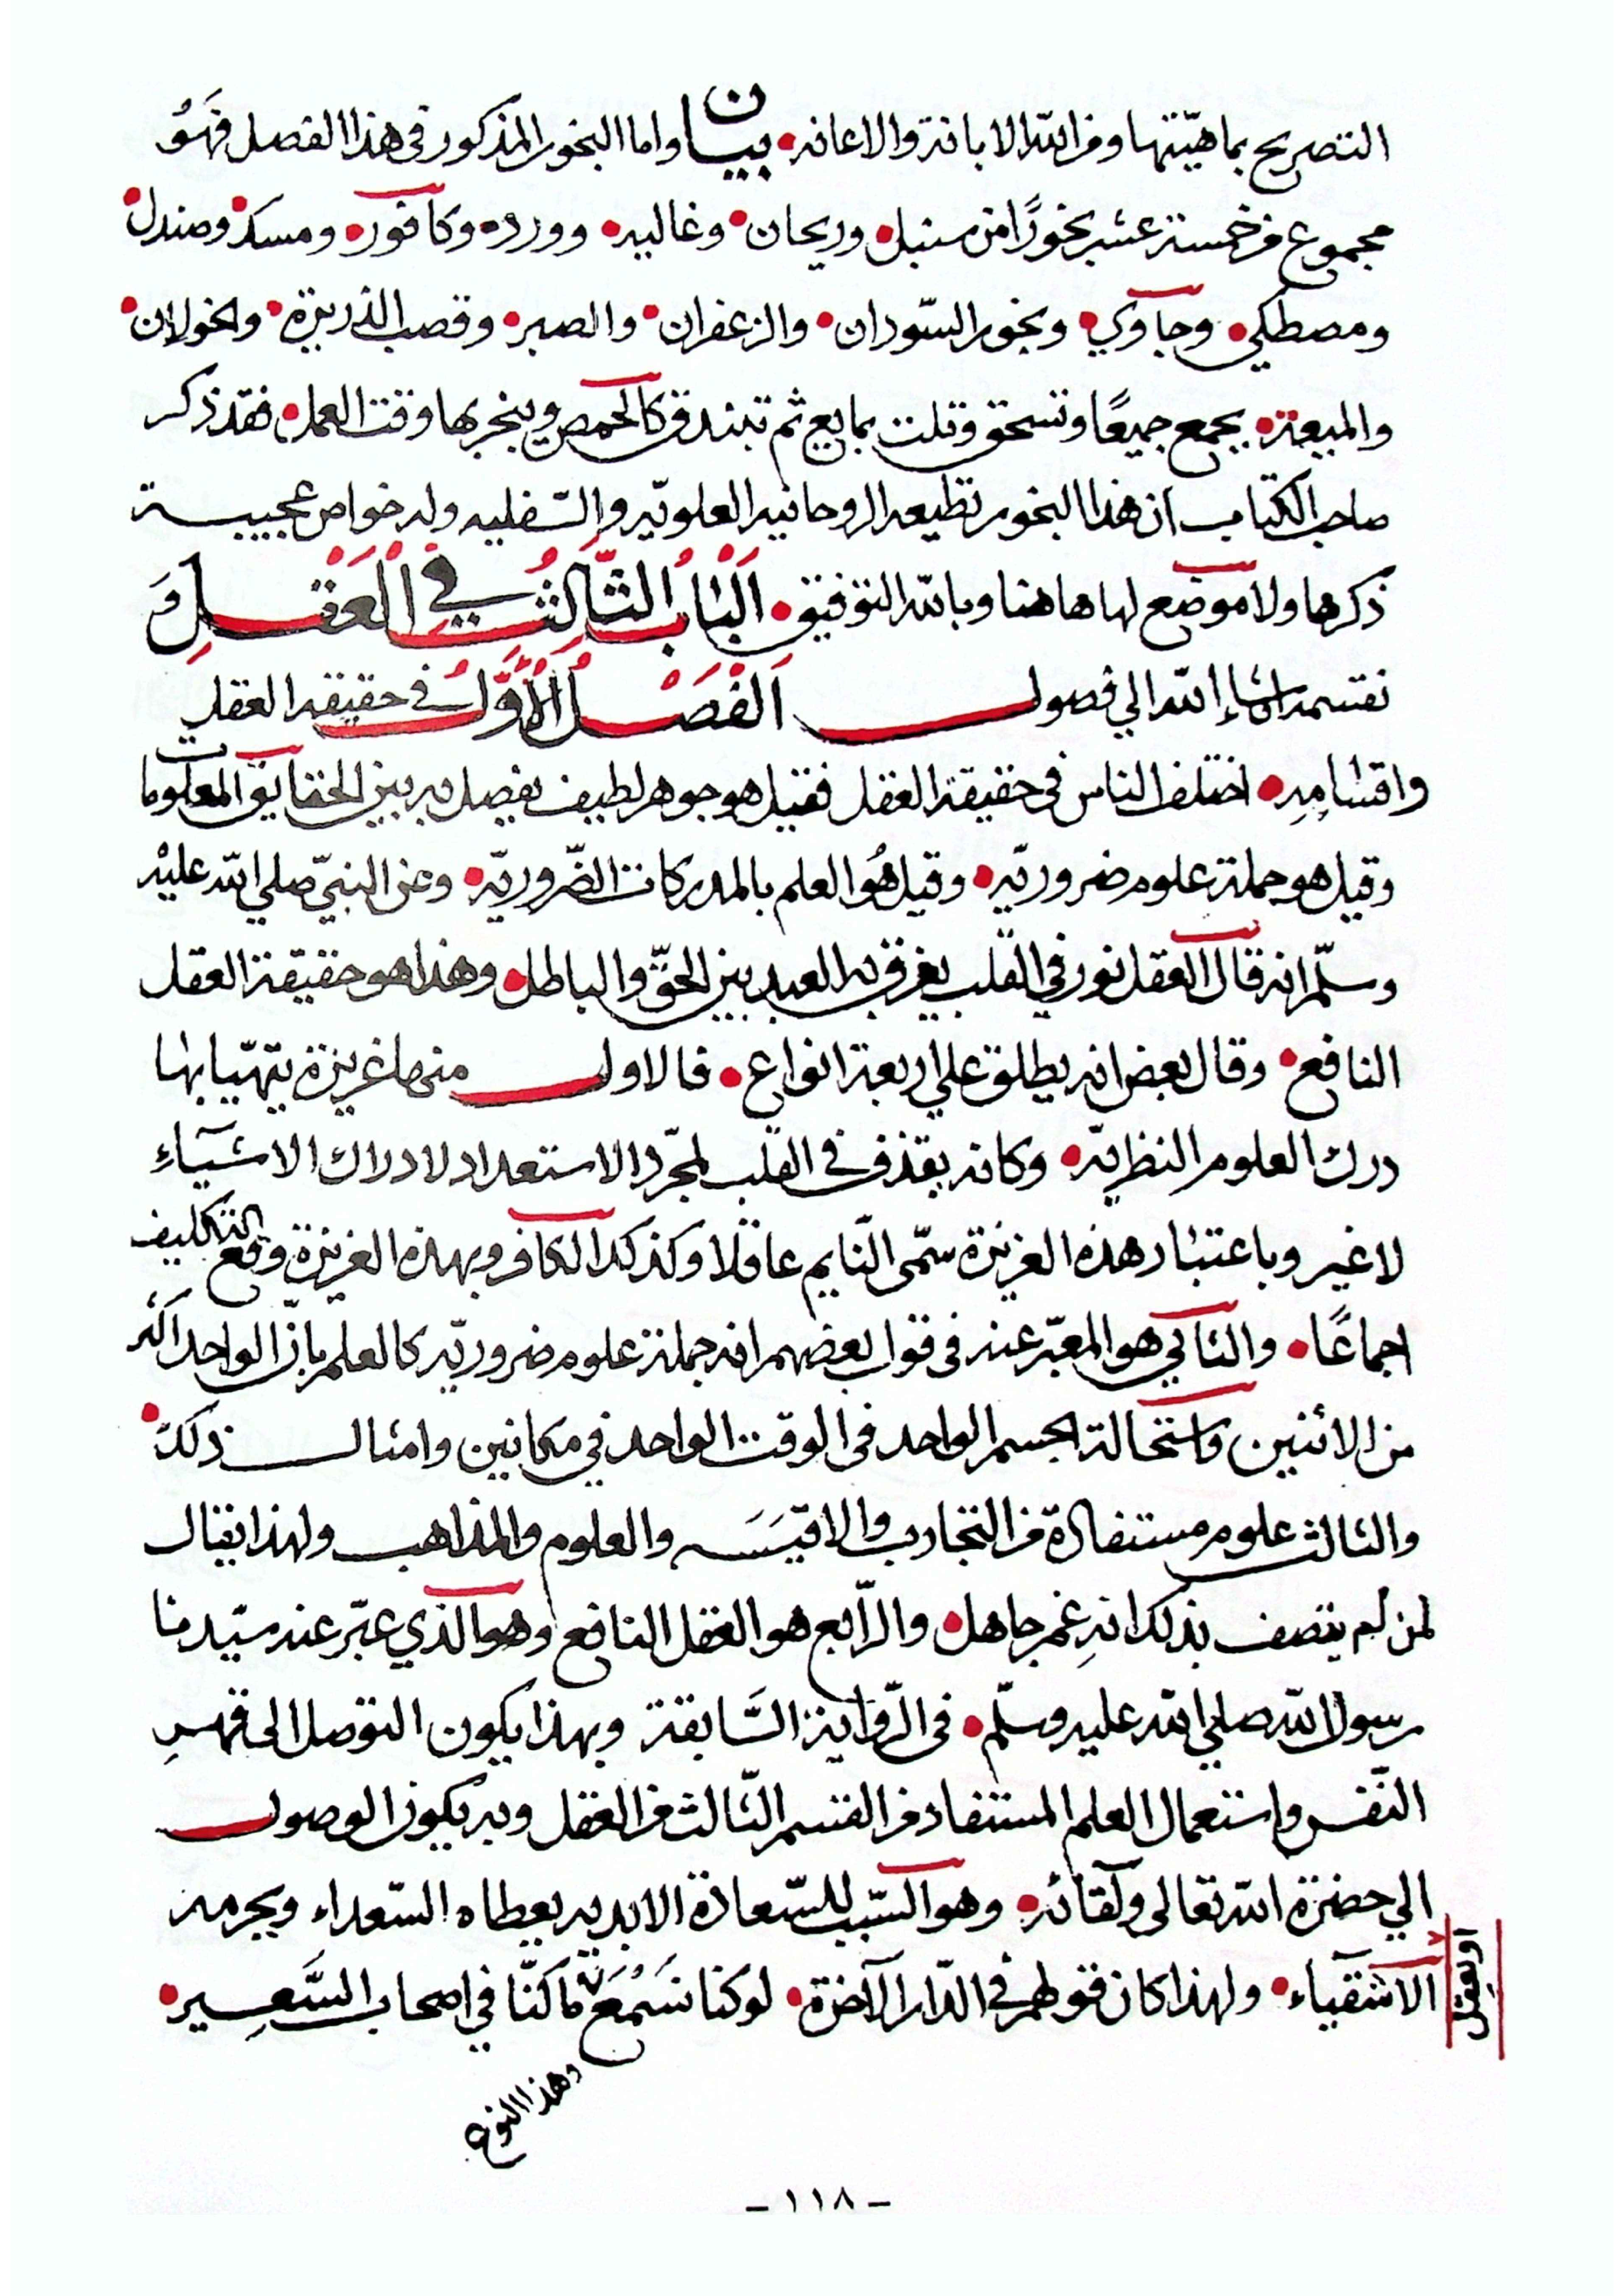 التصريح بماهيّتها ومن الله الابانة والاعانه • بيان واما البخور المذكور في هذا الفصل فهَوُ
مجموع من خمسة عشر بخورًا من سنبل • وريحان • وغاليه • وورد • وكافور • ومسك • وصندل •
ومصطكي • وجاوي • وبخور السّودان • والزعفران • والصبر • وقصب الذريرة • والخولان •
والميعة • يجمع جميعًا وتسحق وتلت بمايع ثم تبندق كالحمص ويبخر بها وقت العمل • فقد ذكر
صاحب الكتاب ان هذا البخور تطيعه الروحانيه العلويّه والسّفليه وله خواص عجيبة
ذكرها ولا موضع لها هاهنا وبالله التوفيق • اَلْبَابُ الثَّالِثُ فِي اْلْعَقْلِ وَ
نقسمه ان شاء الله الي فصول اَلْفَصْلُ الْأَوَّلُ في حقيقة العقل
واقسَامِهِ • اختلف الناس في حقيقة العقل فقيل هو جوهر لطيف يفصل به بين الحقايق المعلومات
وقيل هو جملة علوم ضروريّه • وقيل هُو العلم بالمدركات الضّروريّه • وعن النبيّ صلي الله عليْه
وسلّم انه قال العقل نور في القلب يفرق به العبد بين الحقّ والباطل • وهذا هو حقيقة العقل
النافع • وقال بعض انه يطلق علي اربعة انواع • فالاول منها غريزة يتهيّا بها
درك العلوم النظريّه • وكانه يقذف في القلب لمجرّد الاستعداد لادراك الاشيَآءِ
لا غير وباعتبَار هذه الغريزة سمّى النّايم عاقلا وكذلك الكافر وبهذه الغريزة وقع التكليف
اجماعًا • والثاني هو المعبّر عنه في قول بعضهم انه جملة علوم ضروريّه كالعلم بانّ الواحد اَقلُ
من الاثنين واستحالة الجسم الواحد في الوقت الواحد في مكانين وامثال ذلك •
والثالث علوم مستفادة من التجارب والاقيَسَه والعلوم والمذاهب ولهذا يقال
لمن لم يتصف بذلك انهِ غمر جاهل • والرّابع هو العقل النافع وهو الذي عبّر عنه سيّدنا
رسول الله صلي الله عليه وسلّم • في الرّواية السَّابقة وبهذا يكون التوصل الى قهرِ
النّفس واستعمال العلم المستفاد من القسم الثّالث من العقل وبه يكون الوصول
الي حضرة الله تعالى ولقائه • وهو السّبب للسّعادة الابديه يعطاه السّعداء ويحرمه
الاشقيآء • ولهذا كان قولهم في الدّار الآخرة • لو كنا نسَمْعَ مَا كَنّا في اصحاب السَّعِير •
او نعقل
وهذا النوع
- ١١٨ -